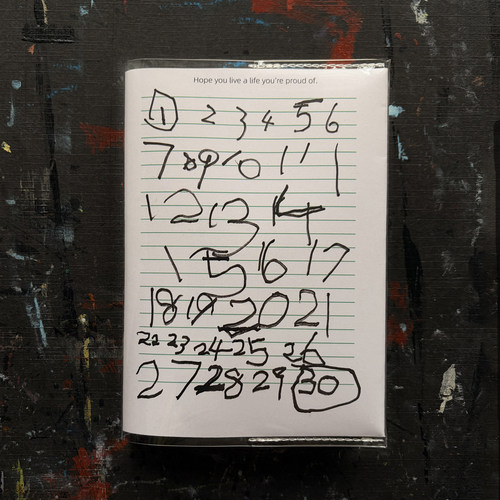 Hope you live a life you're proud of.
1 2 3 4 5 6
7 8 9 10 11
12 13 14
15 16 17
18 19 20 21
22 23 24 25 26
27 28 29 30